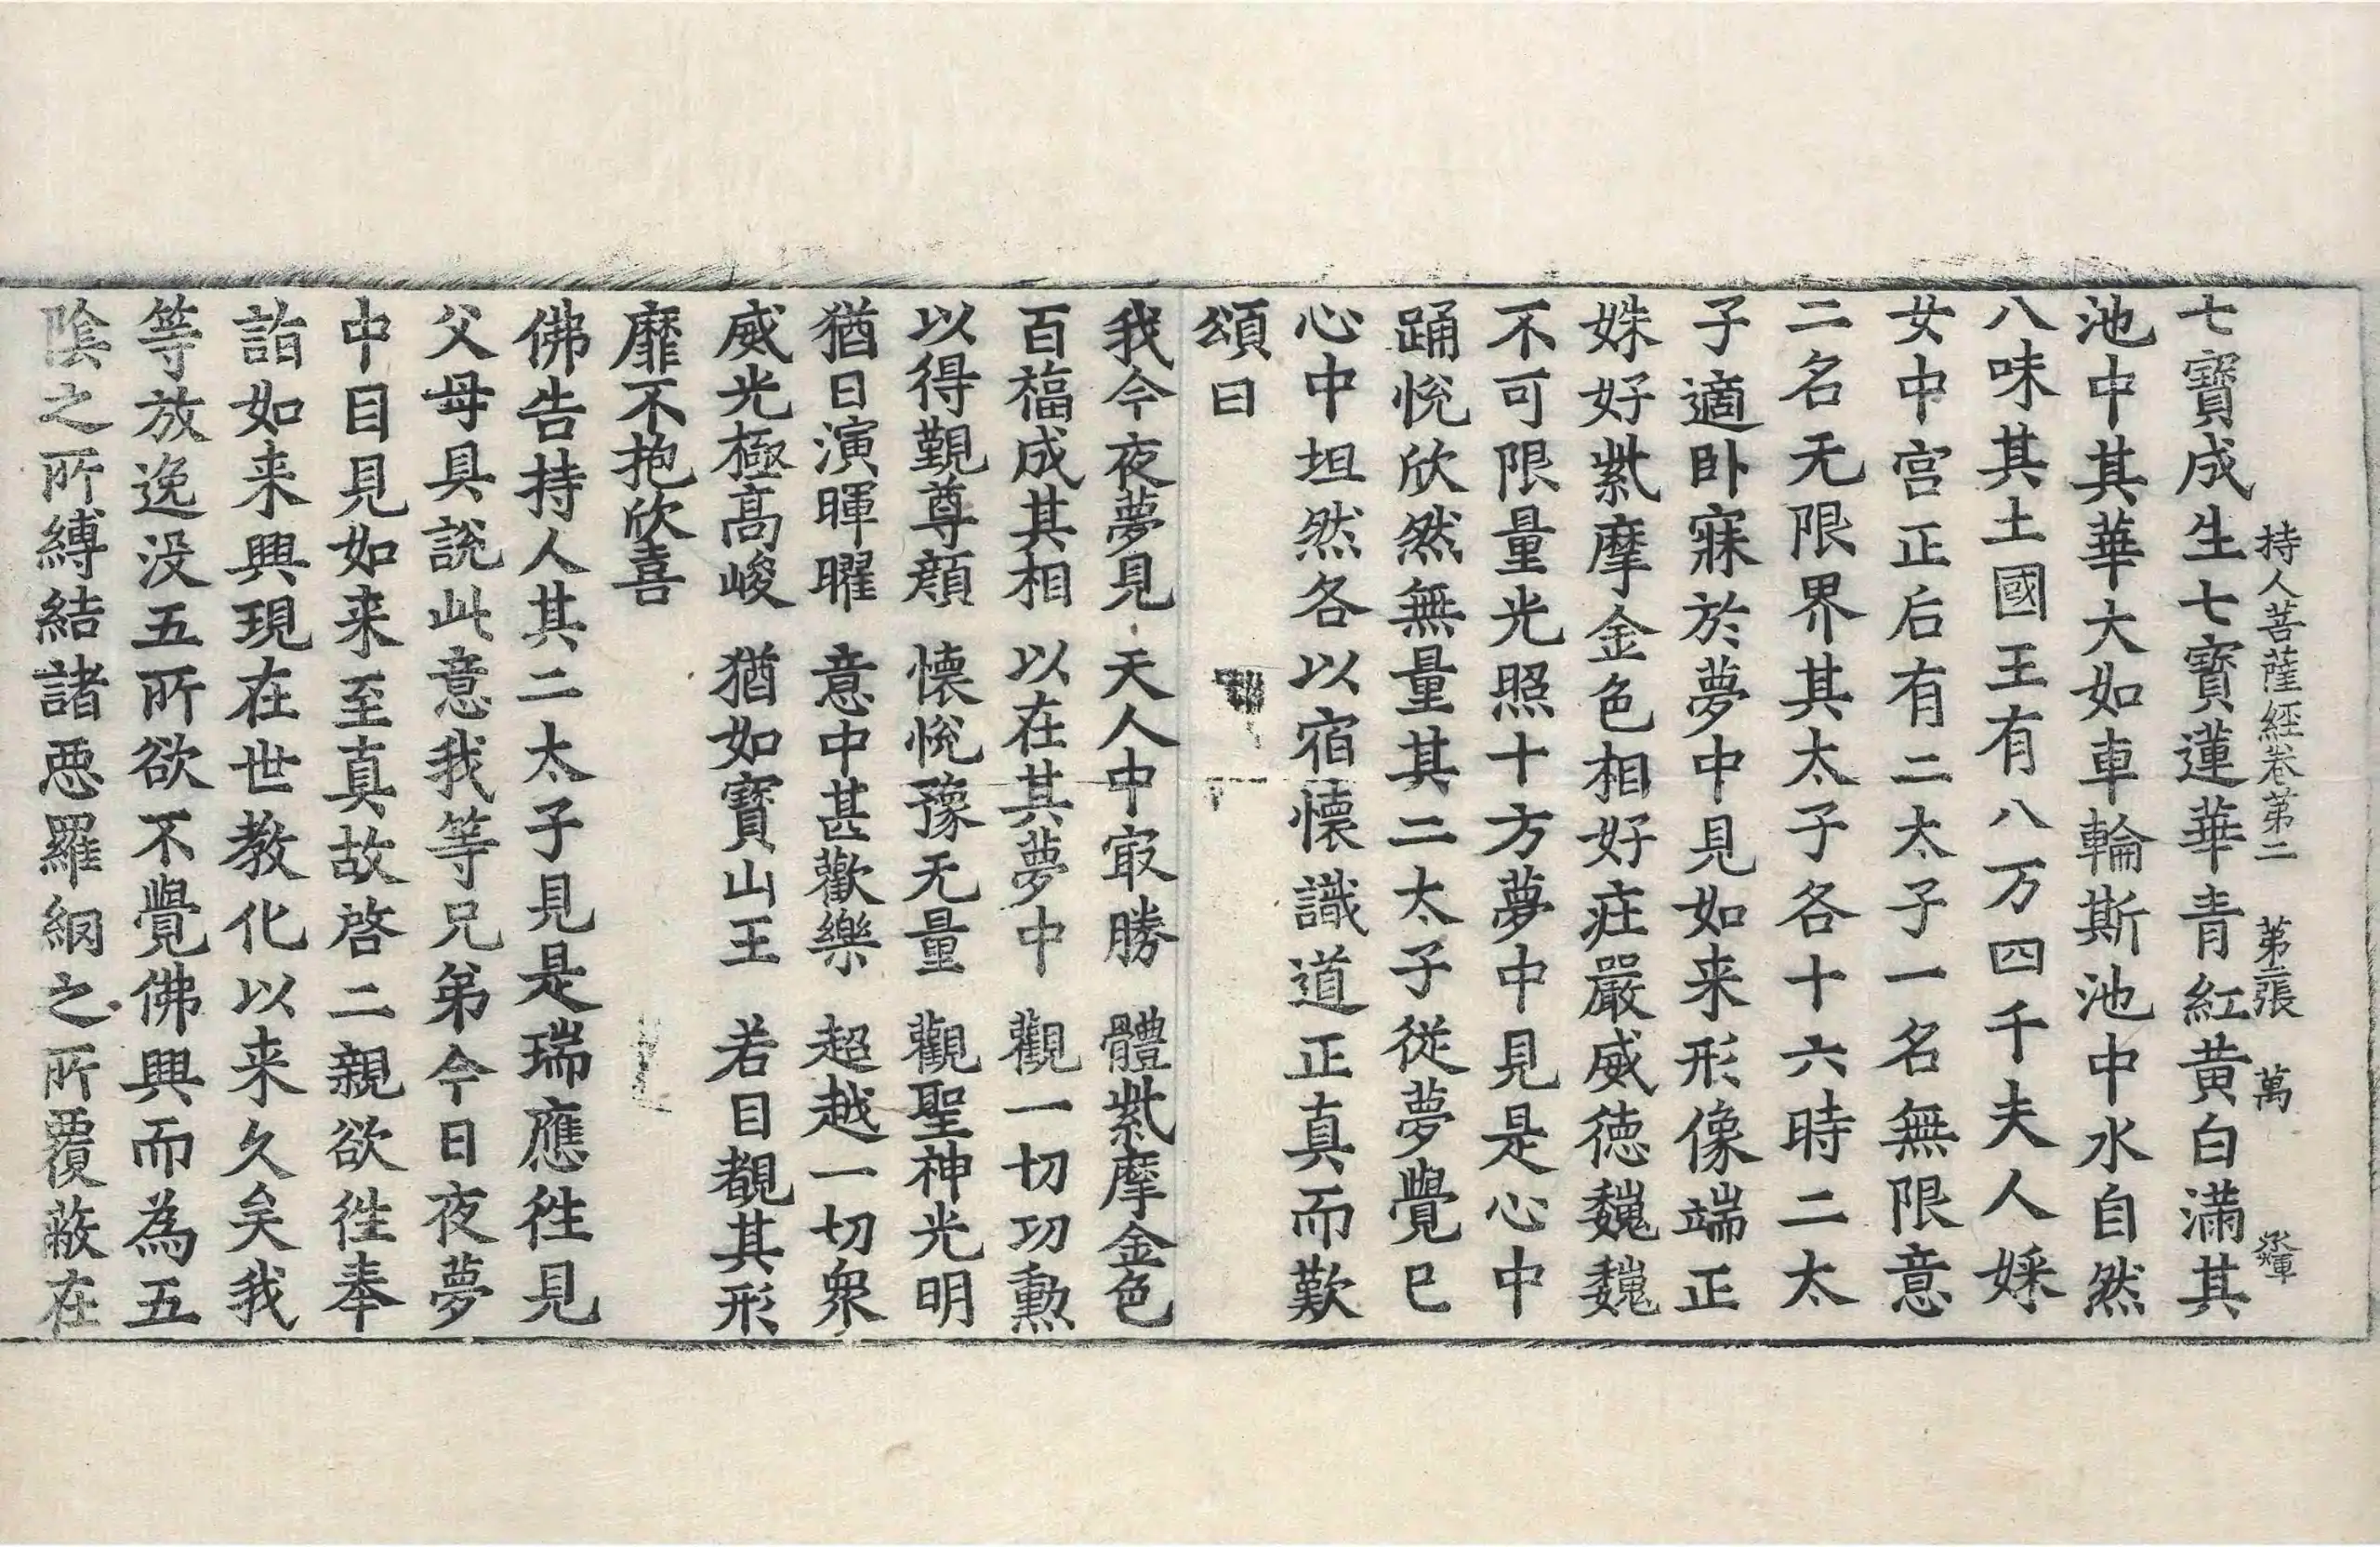 持人菩薩經卷第二 第二張 萬
七寶成生七寶蓮華青紅黄白滿其
池中其華大如車輪斯池中水自然
八味其土國王有八万四千夫人婇
女中宫正后有二太子一名無限意
二名无限界其太子各十六時二太
子適卧寐於夢中見如来形像端正
姝好紫摩金色相好莊嚴威徳巍巍
不可限量光照十方夢中見是心中
踊悅欣然無量其二太子從夢覺已
心中坦然各以宿懷識道正真而歎
頌曰
我今夜夢見 天人中㝡勝 體紫摩金色
百福成其相 以在其夢中 觀一切功勳
以得覲尊顔 懷悅豫无量 觀聖神光明
猶日演暉曜 意中甚歡樂 超越一切衆
威光極髙峻 猶如寶山王 若目覩其形
靡不抱欣喜
佛告持人其二太子見是瑞應徃見
父母具說此意我等兄弟今日夜夢
中目見如来至真故啓二親欲徃奉
詣如来興現在世教化以来久矣我
等放逸没五所欲不覺佛興而為五
陰之所縛結諸惡羅網之所覆蔽在